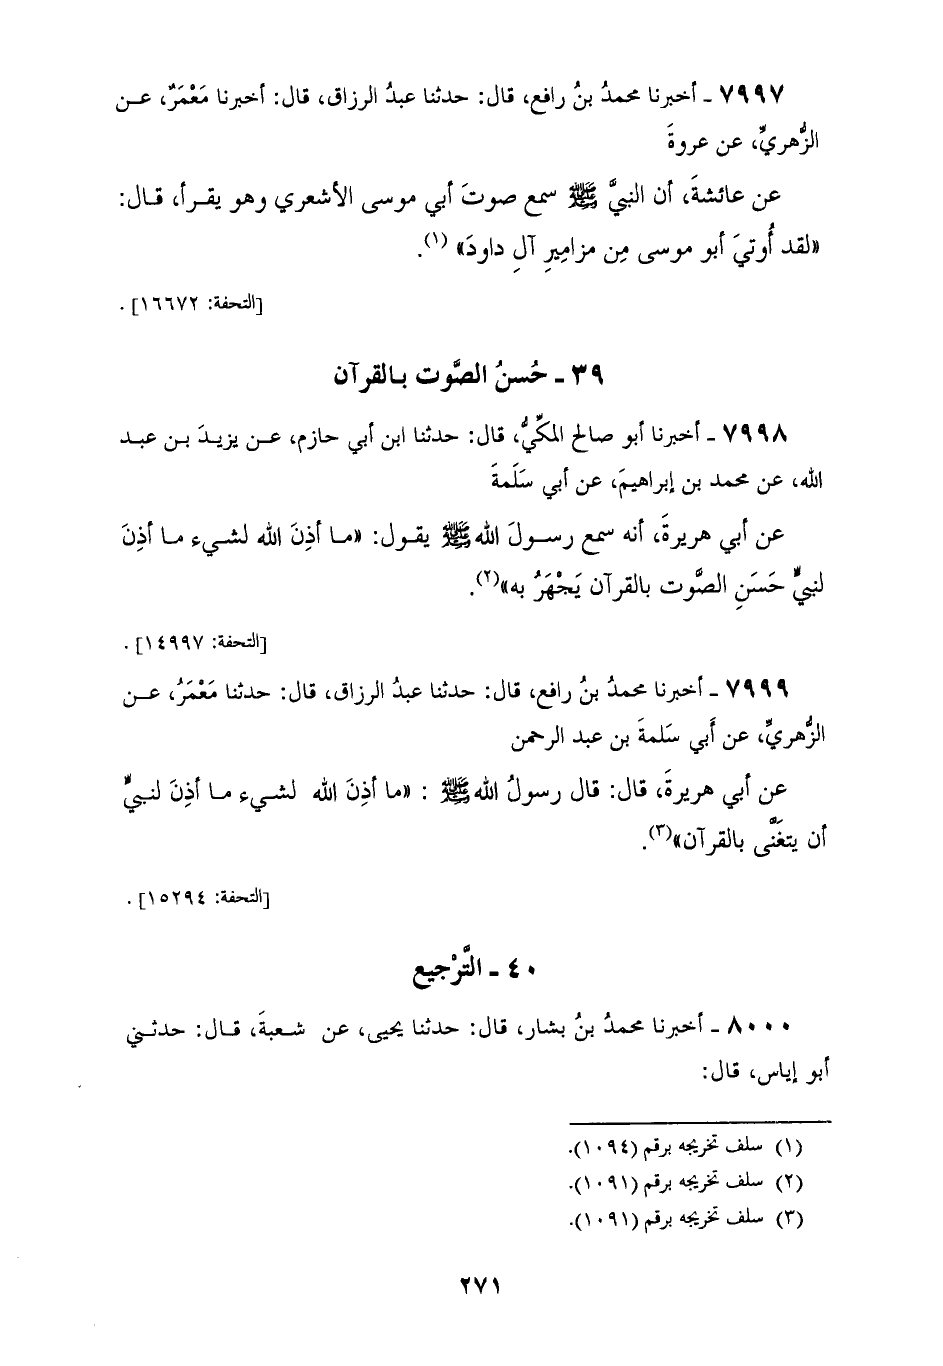 ٧٩٩٧ ـ أخبرنا محمدُ بنُ رافع، قال: حدثنا عبدُ الرزاق، قال: أخبرنا مَعْمَرٌ، عـن
الزُّهريِّ، عن عروةَ
عن عائشةَ، أن النبيَّ ﷺ سمع صوتَ أبي موسى الأشعري وهو يقـرأ، قـال:
«لقد أُوتيَ أبو موسى مِن مزامِيرِ آلِ داودَ» (١).
[التحفة: ١٦٦٧٢] .
٣٩ ـ حُسنُ الصَّوت بـالقرآن
٧٩٩٨ ـ أخبرنا أبو صالح المكِّيُّ، قال: حدثنا ابن أبي حازم، عـن يزيـدَ بـن عبـد
الله، عن محمد بن إبراهيمَ، عن أبي سَلَمةَ
عن أبي هريرةَ، أنه سمع رسـولَ الله ﷺ يقـول: «مـا أذِنَ الله لشـيء مـا أذِنَ
لنبيٍّ حَسَنِ الصَّوت بالقرآن يَجْهَرُ به»(٢).
[التحفة: ١٤٩٩٧] .
٧٩٩٩ ـ أخبرنا محمدُ بنُ رافع، قال: حدثنا عبدُ الرزاق، قال: حدثنا مَعْمَرُ، عـن
الزُّهريِّ، عن أَبي سَلمةَ بن عبد الرحمن
عن أبي هريرةَ، قال: قال رسولُ الله ﷺ : «ما أذِنَ الله لشـيء مـا أذِنَ لنبـيٍّ
أن يتغَنَّى بالقرآن»(٣).
[التحفة: ١٥٢٩٤] .
٤٠ ـ التَّرْجيع
٨٠٠٠ ـ أخبرنا محمدُ بنُ بشار، قال: حدثنا يحيى، عن شـعبةَ، قـال: حدثـني
أبو إياس، قال:
(١) سلف تخريجه برقم (١٠٩٤).
(٢) سلف تخريجه برقم (١٠٩١).
(٣) سلف تخريجه برقم (١٠٩١).
٢٧١